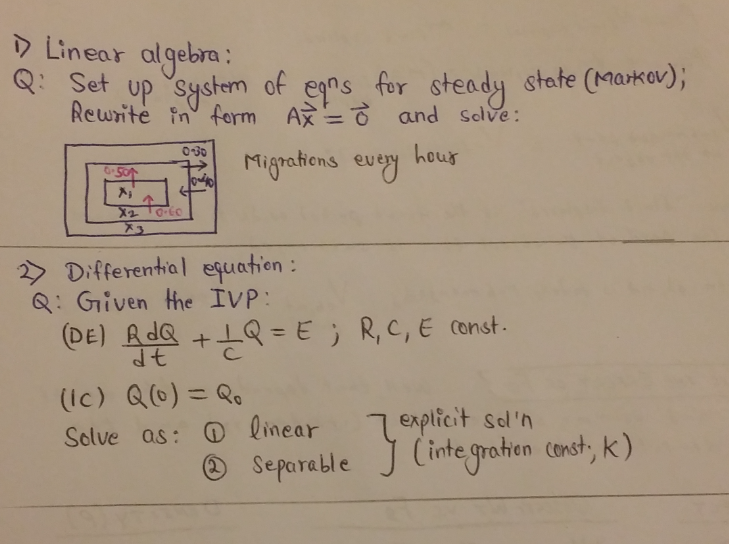 1) Linear algebra:
Q: Set up system of eqns for steady state (Markov);
Rewrite in form Ax⃗ = 0⃗ and solve:
0.30
0.50
0.40
x₁
x₂ 0.60
x₃
Migrations every hour
2) Differential equation:
Q: Given the IVP:
(DE) RdQ/dt + 1/C Q = E ; R, C, E const.
(IC) Q(0) = Q₀
Solve as: ① linear
② separable
} explicit sol'n
(integration const., K)